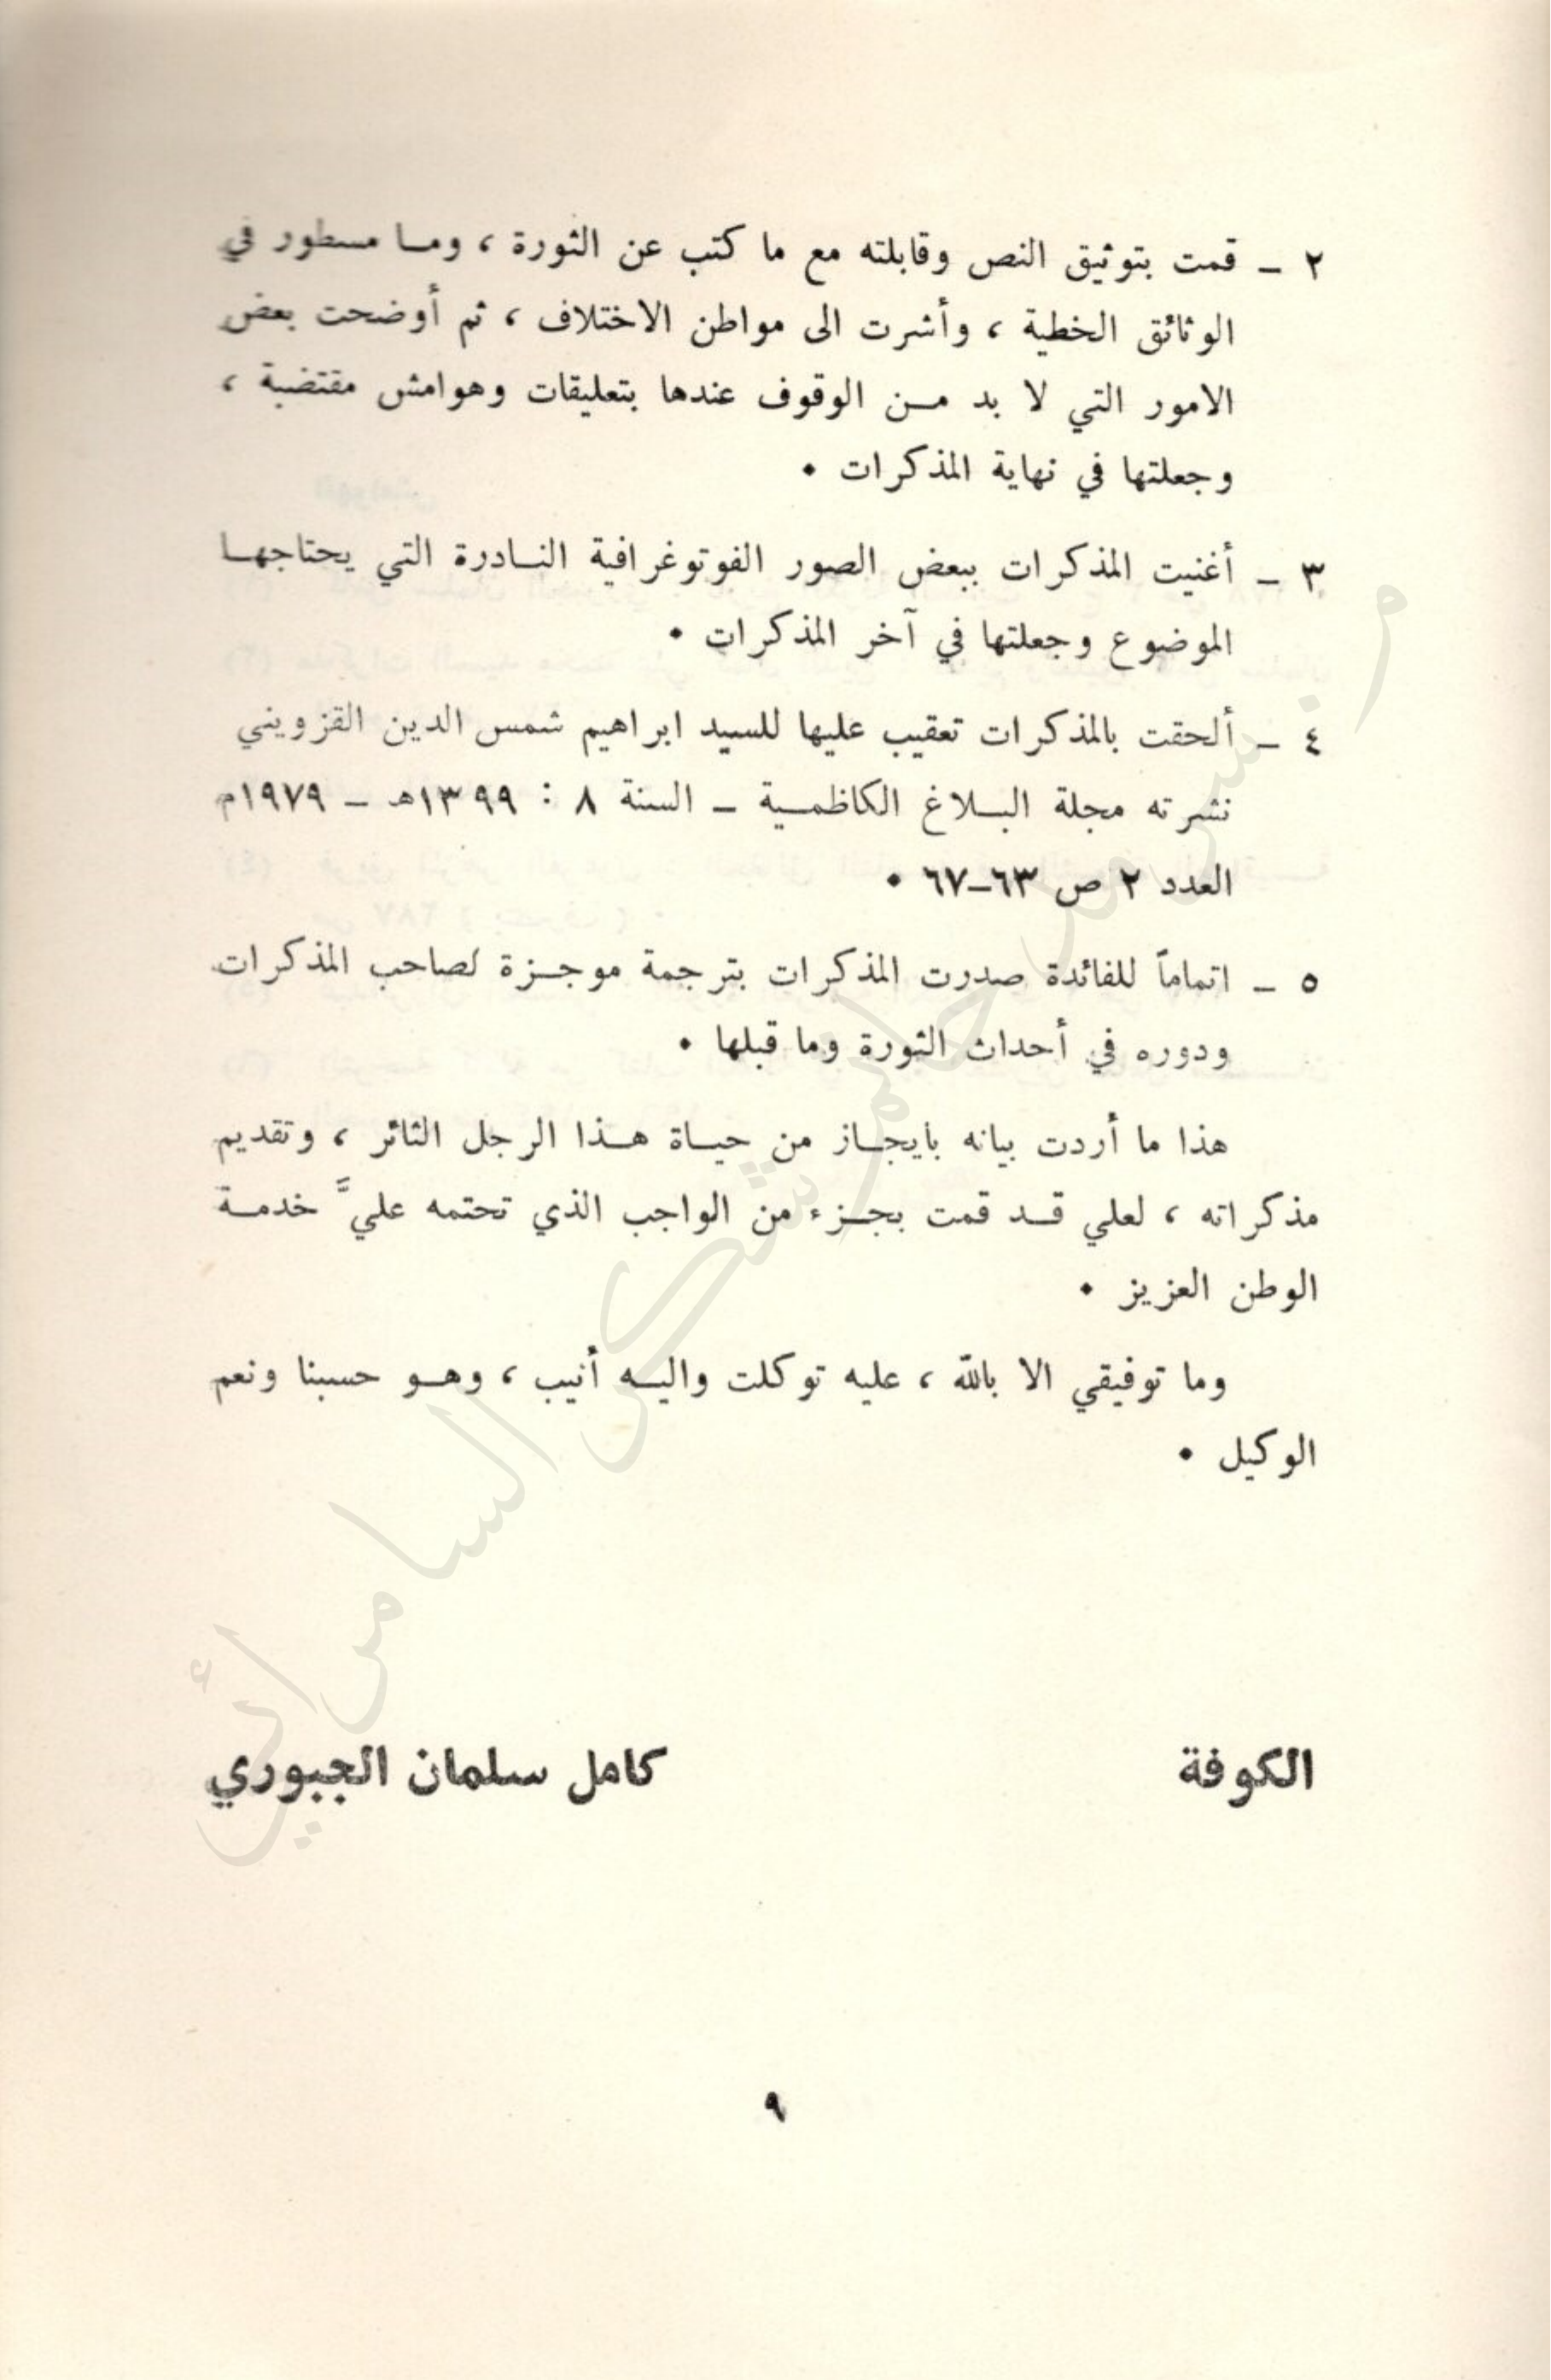 ٢ ـ قمت بتوثيق النص وقابلته مع ما كتب عن الثورة ، وما مسطور في
الوثائق الخطية ، وأشرت الى مواطن الاختلاف ، ثم أوضحت بعض
الامور التي لا بد من الوقوف عندها بتعليقات وهوامش مقتضبة ،
وجعلتها في نهاية المذكرات ٠
٣ ـ أغنيت المذكرات ببعض الصور الفوتوغرافية النادرة التي يحتاجها
الموضوع وجعلتها في آخر المذكرات ٠
٤ ـ ألحقت بالمذكرات تعقيب عليها للسيد ابراهيم شمس الدين القزويني
نشرته مجلة البلاغ الكاظمية ـ السنة ٨ : ١٣٩٩هـ ـ ١٩٧٩م
العدد ٢ ص ٦٣ـ٦٧ ٠
٥ ـ اتماماً للفائدة صدرت المذكرات بترجمة موجزة لصاحب المذكرات
ودوره في أحداث الثورة وما قبلها ٠
هذا ما أردت بيانه بايجاز من حياة هذا الرجل الثائر ، وتقديم
مذكراته ، لعلي قد قمت بجزء من الواجب الذي تحتمه عليَّ خدمة
الوطن العزيز ٠
وما توفيقي الا بالله ، عليه توكلت واليه أنيب ، وهو حسبنا ونعم
الوكيل ٠
الكوفة كامل سلمان الجبوري
٩